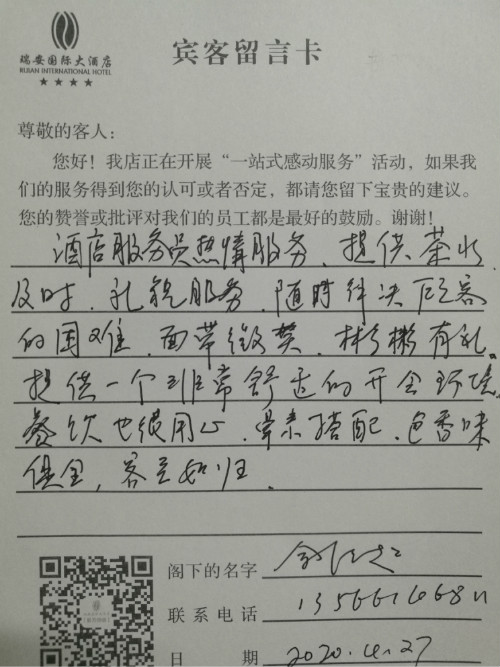 瑞安国际大酒店
RUIAN INTERNATIONAL HOTEL
★★★★
宾客留言卡
尊敬的客人：
您好！我店正在开展“一站式感动服务”活动，如果我
们的服务得到您的认可或者否定，都请您留下宝贵的建议。
您的赞誉或批评对我们的员工都是最好的鼓励。谢谢！
酒店服务员热情服务、提供茶水
及时、礼貌服务、随时解决顾客
的困难、面带微笑、彬彬有礼。
提供一个非常舒适的开会环境，
餐饮也很用心、荤素搭配、色香味
俱全，客至如归。
阁下的名字
联系电话
日期 2020.4.27